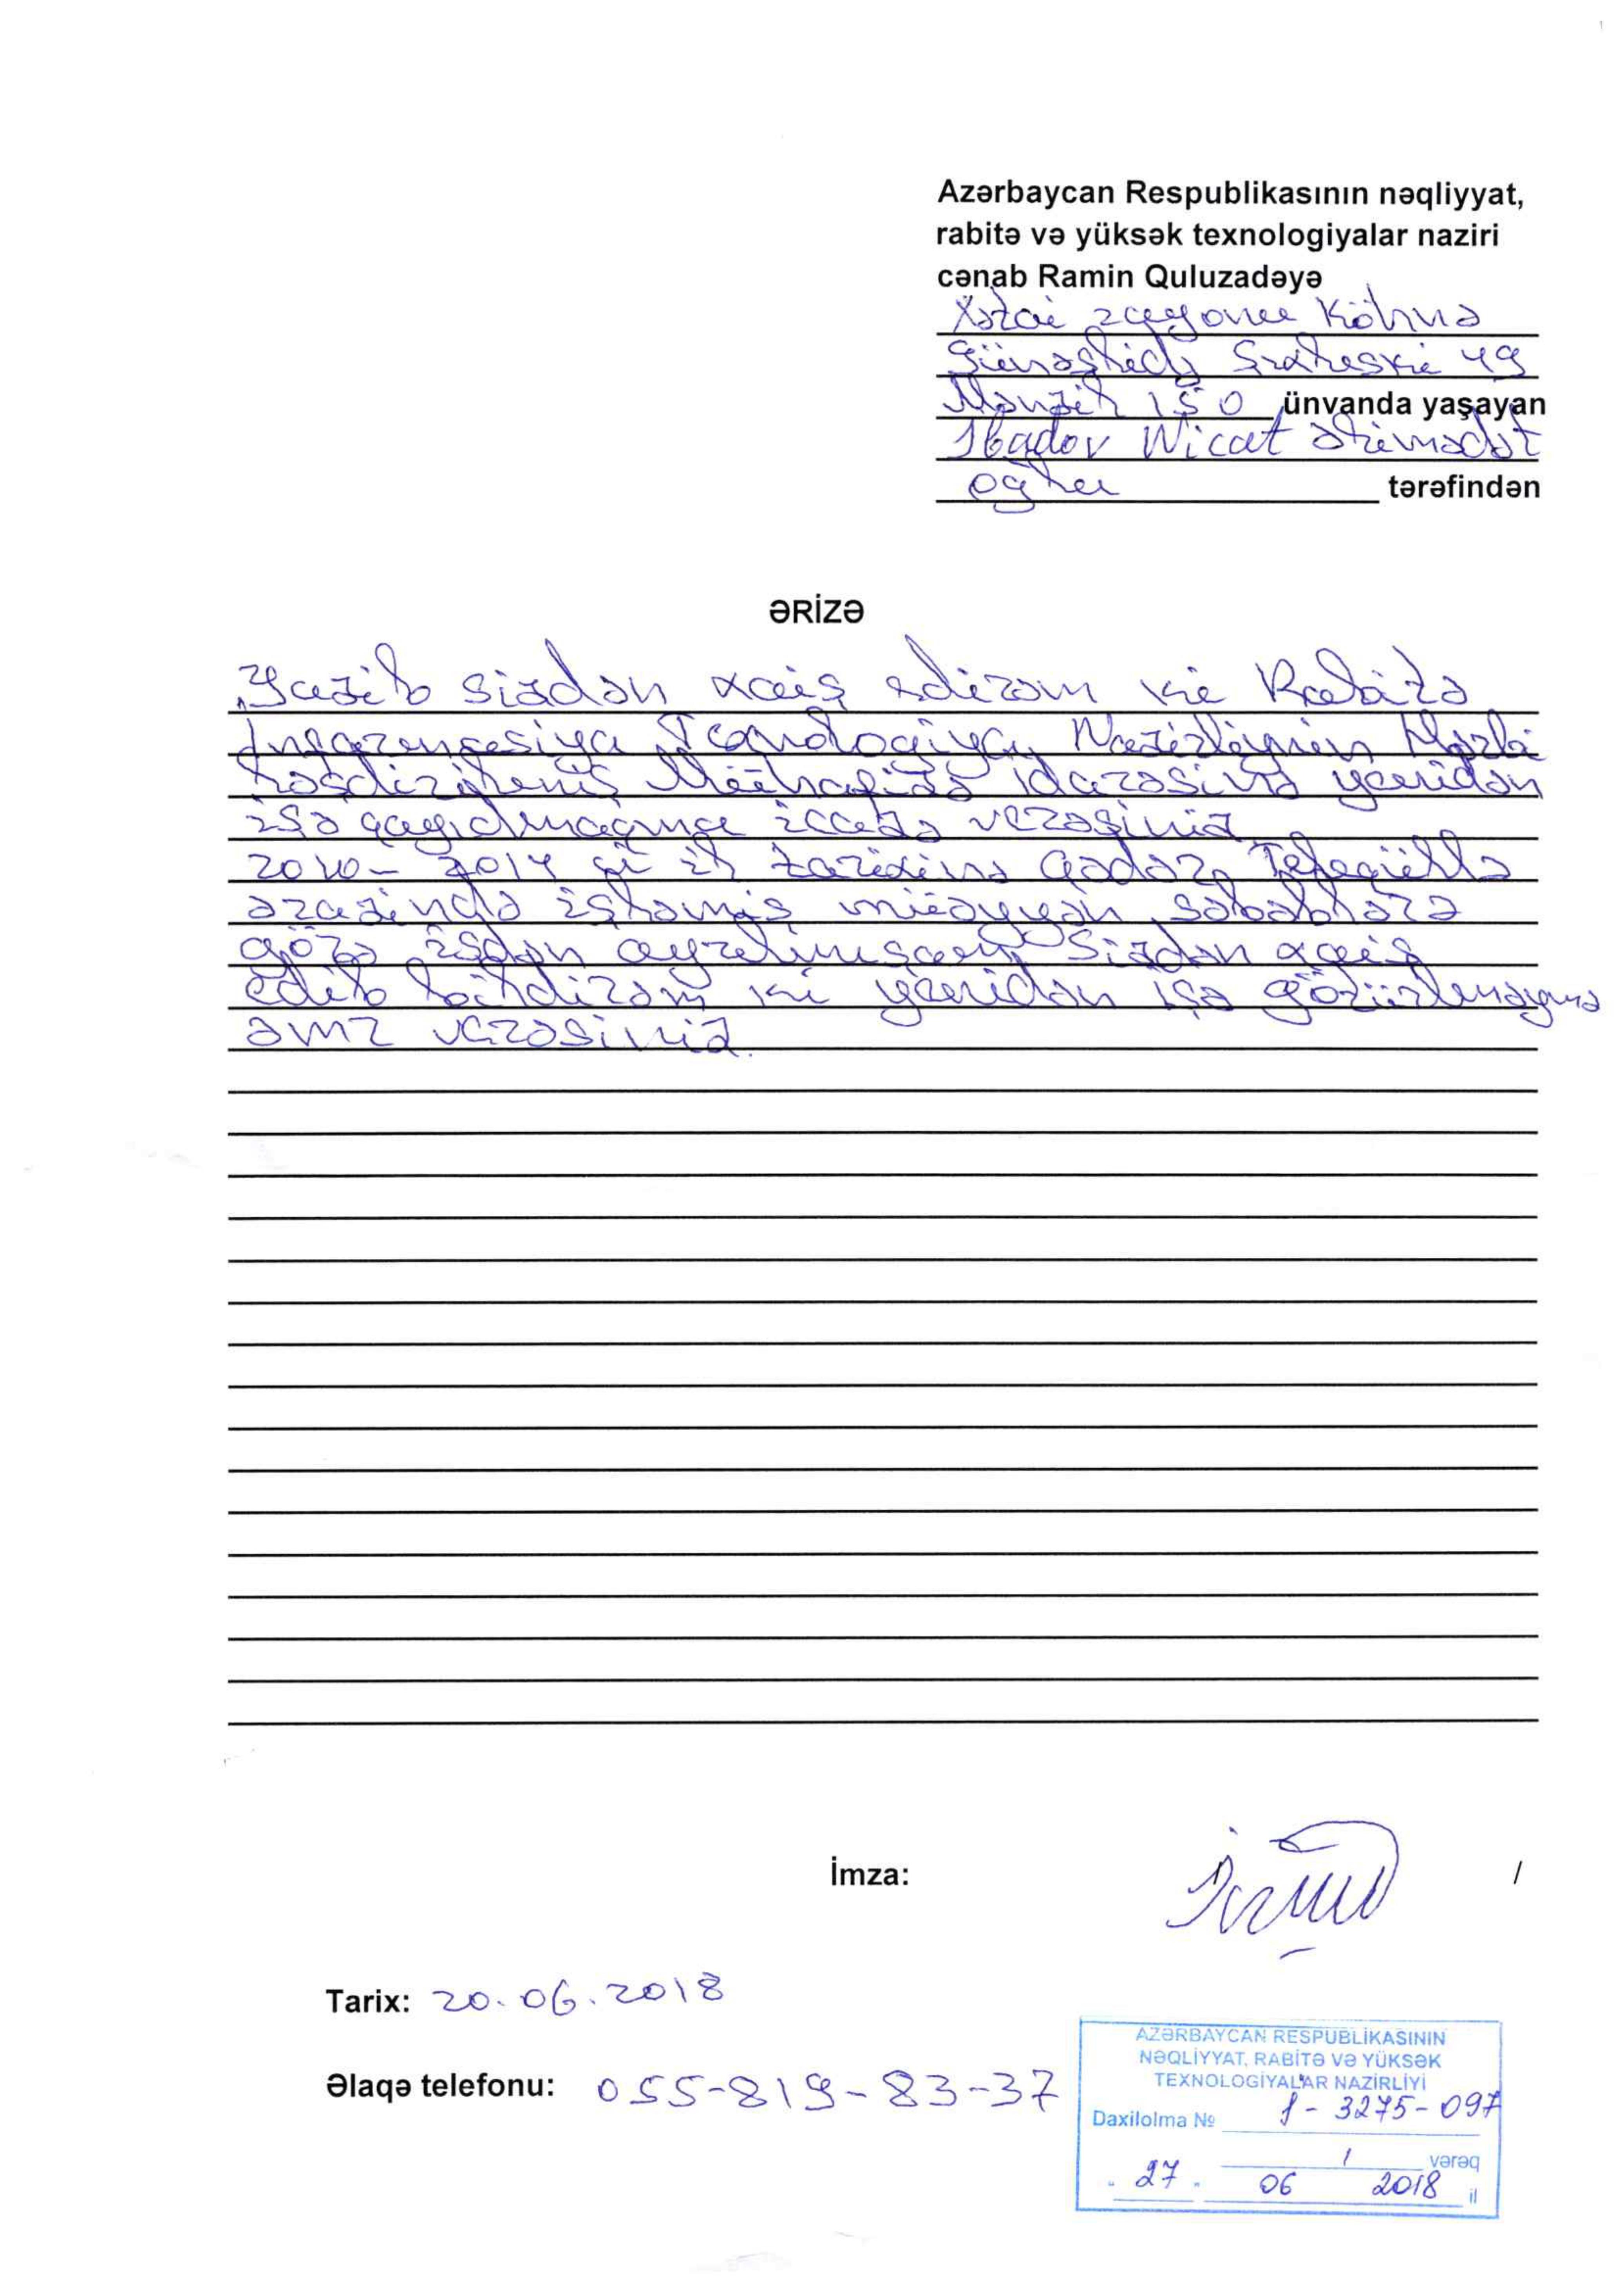 Azərbaycan Respublikasının nəqliyyat,
rabitə və yüksək texnologiyalar naziri
cənab Ramin Quluzadəyə
Xətai rayonu Köhnə
Günəşli 49
Mənzil 150 ünvanda yaşayan
İbadov Nicat
oğlu tərəfindən
ƏRİZƏ
Yazib sizdən xaiş edirəm ki Rabitə
Nazirliyinin Hərbi
idarəsinə yenidən
işə qayıdmağıma icazə verəsiniz
2010-2014 ci il tarixinə qədər
ərazində işləmiş müəyyən səbəblərə
görə işdən ayrılmışam Sizdən xaiş
edib bildirəm ki yenidən işə
əmr verəsiniz.
İmza: /
Tarix: 20.06.2018
Əlaqə telefonu: 055-819-83-37
AZƏRBAYCAN RESPUBLİKASININ
NƏQLİYYAT, RABİTƏ VƏ YÜKSƏK
TEXNOLOGİYALAR NAZİRLİYİ
Daxilolma № 1-3275-097
1 vərəq
"27" 06 2018 il